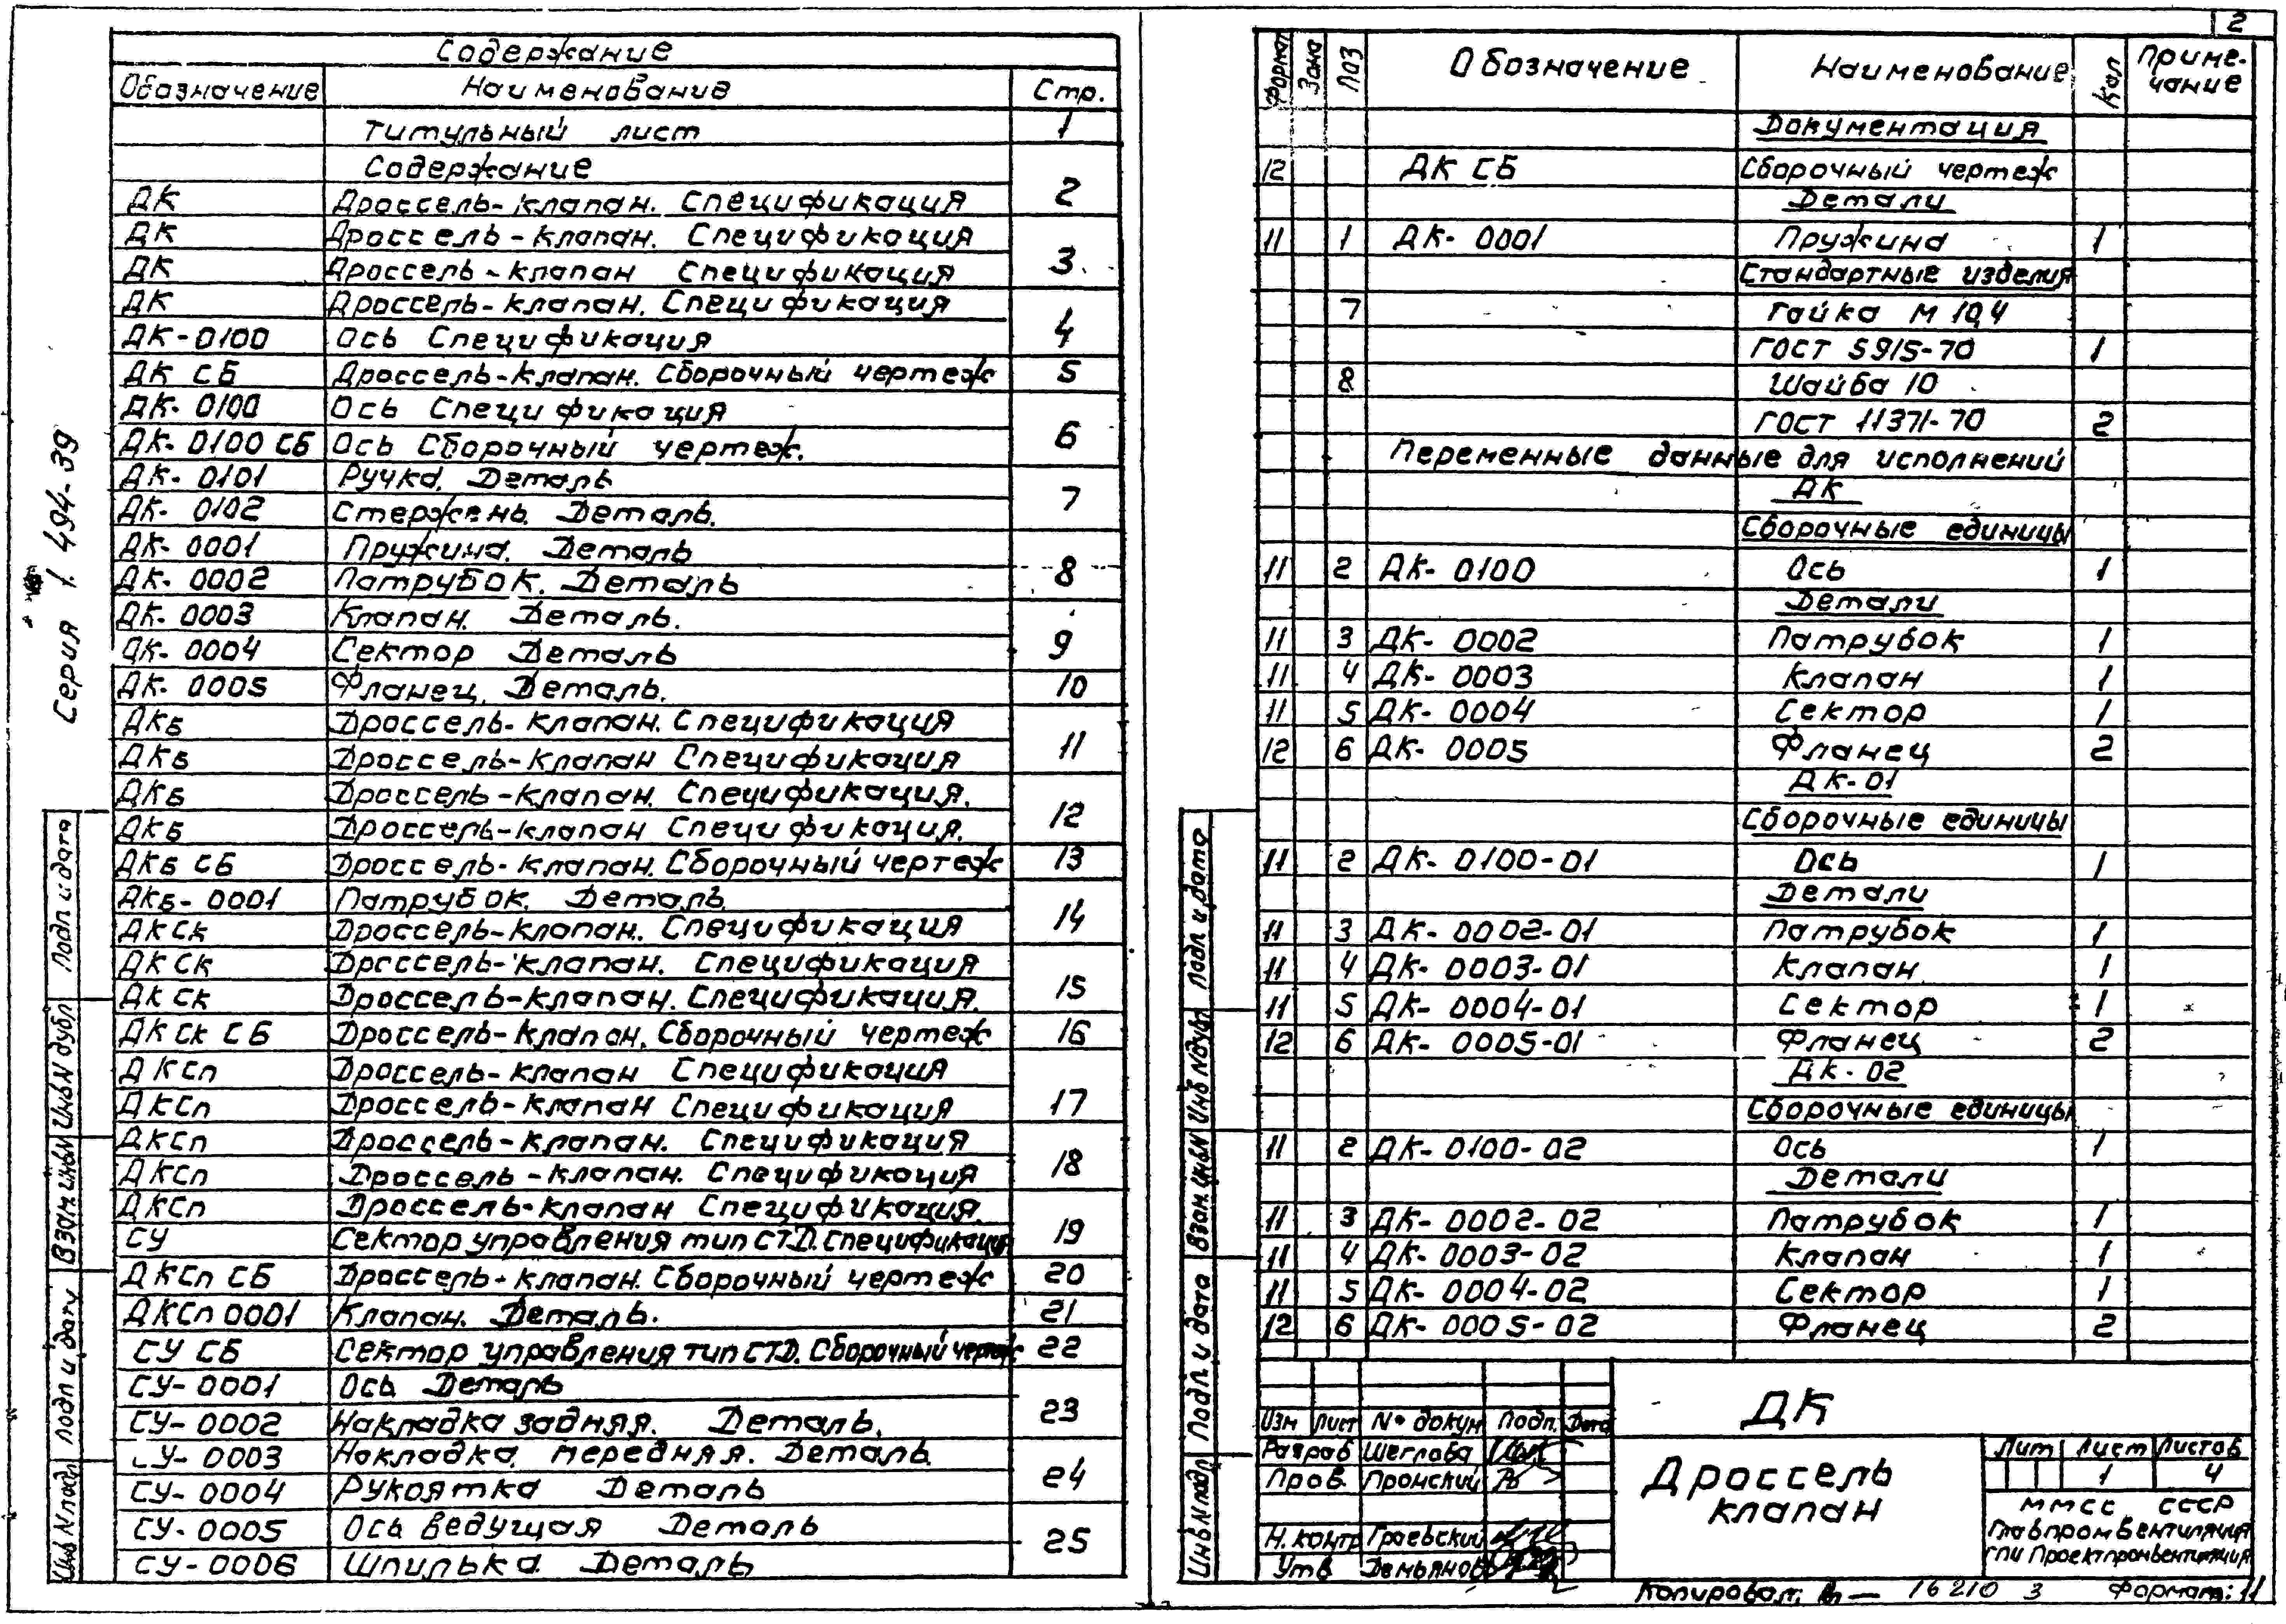 Содержание
Обозначение Наименование Стр.
Титульный лист 1
Содержание
ДК Дроссель-клапан. Спецификация 2
ДК Дроссель-клапан. Спецификация
ДК Дроссель-клапан Спецификация 3
ДК Дроссель-клапан. Спецификация
ДК-0100 Ось Спецификация 4
ДК СБ Дроссель-клапан. Сборочный чертеж 5
ДК-0100 Ось Спецификация
ДК-0100 СБ Ось Сборочный чертеж. 6
ДК-0101 Ручка. Деталь
ДК-0102 Стержень. Деталь. 7
ДК-0001 Пружина. Деталь
ДК-0002 Патрубок. Деталь 8
ДК-0003 Клапан. Деталь.
ДК-0004 Сектор Деталь 9
ДК-0005 Фланец. Деталь. 10
ДКБ Дроссель-клапан. Спецификация
ДКБ Дроссель-клапан Спецификация 11
ДКБ Дроссель-клапан. Спецификация.
ДКБ Дроссель-клапан Спецификация. 12
ДКБ СБ Дроссель-клапан. Сборочный чертеж 13
ДКБ-0001 Патрубок. Деталь
ДКСк Дроссель-клапан. Спецификация 14
ДКСк Дроссель-клапан. Спецификация
ДКСк Дроссель-клапан. Спецификация. 15
ДКСк СБ Дроссель-клапан. Сборочный чертеж 16
ДКСп Дроссель-клапан Спецификация
ДКСп Дроссель-клапан Спецификация 17
ДКСп Дроссель-клапан. Спецификация
ДКСп Дроссель-клапан. Спецификация 18
ДКСп Дроссель-клапан Спецификация.
СУ Сектор управления тип СТД. Спецификация 19
ДКСп СБ Дроссель-клапан. Сборочный чертеж 20
ДКСп 0001 Клапан. Деталь. 21
СУ СБ Сектор управления тип СТД. Сборочный чертеж 22
СУ-0001 Ось Деталь
СУ-0002 Накладка задняя. Деталь. 23
СУ-0003 Накладка передняя. Деталь.
СУ-0004 Рукоятка Деталь 24
СУ-0005 Ось ведущая Деталь
СУ-0006 Шпилька Деталь 25
Серия 1. 494-39
Подп и дата
Инв N дубл
Взам. инв N
Подп и дату
Инв N подл
2
Формат Зона Поз Обозначение Наименование Кол Приме-
чание
Документация
12 ДК СБ Сборочный чертеж
Детали
11 1 ДК-0001 Пружина 1
Стандартные изделия
7 Гайка М 10,4
ГОСТ 5915-70 1
8 Шайба 10
ГОСТ 11371-70 2
Переменные данные для исполнений
ДК
Сборочные единицы
11 2 ДК-0100 Ось 1
Детали
11 3 ДК-0002 Патрубок 1
11 4 ДК-0003 Клапан 1
11 5 ДК-0004 Сектор 1
12 6 ДК-0005 Фланец 2
ДК-01
Сборочные единицы
11 2 ДК-0100-01 Ось 1
Детали
11 3 ДК-0002-01 Патрубок 1
11 4 ДК-0003-01 Клапан 1
11 5 ДК-0004-01 Сектор 1
12 6 ДК-0005-01 Фланец 2
ДК-02
Сборочные единицы
11 2 ДК-0100-02 Ось 1
Детали
11 3 ДК-0002-02 Патрубок 1
11 4 ДК-0003-02 Клапан 1
11 5 ДК-0004-02 Сектор 1
12 6 ДК-0005-02 Фланец 2
Подп и дата
Инв N дубл
Взам. инв N
Подп и дата
Инв N подл
Изм Лист N° докум Подп. Дата
Разраб Щеглова
Пров. Пронский
Н. контр Граевский
Утв Демьянов
ДК
Дроссель
клапан
Лит Лист Листов
1 4
ММСС СССР
Главпромвентиляция
ГПИ Проектпромвентиляция
Копировал: 16210 3 Формат: 11